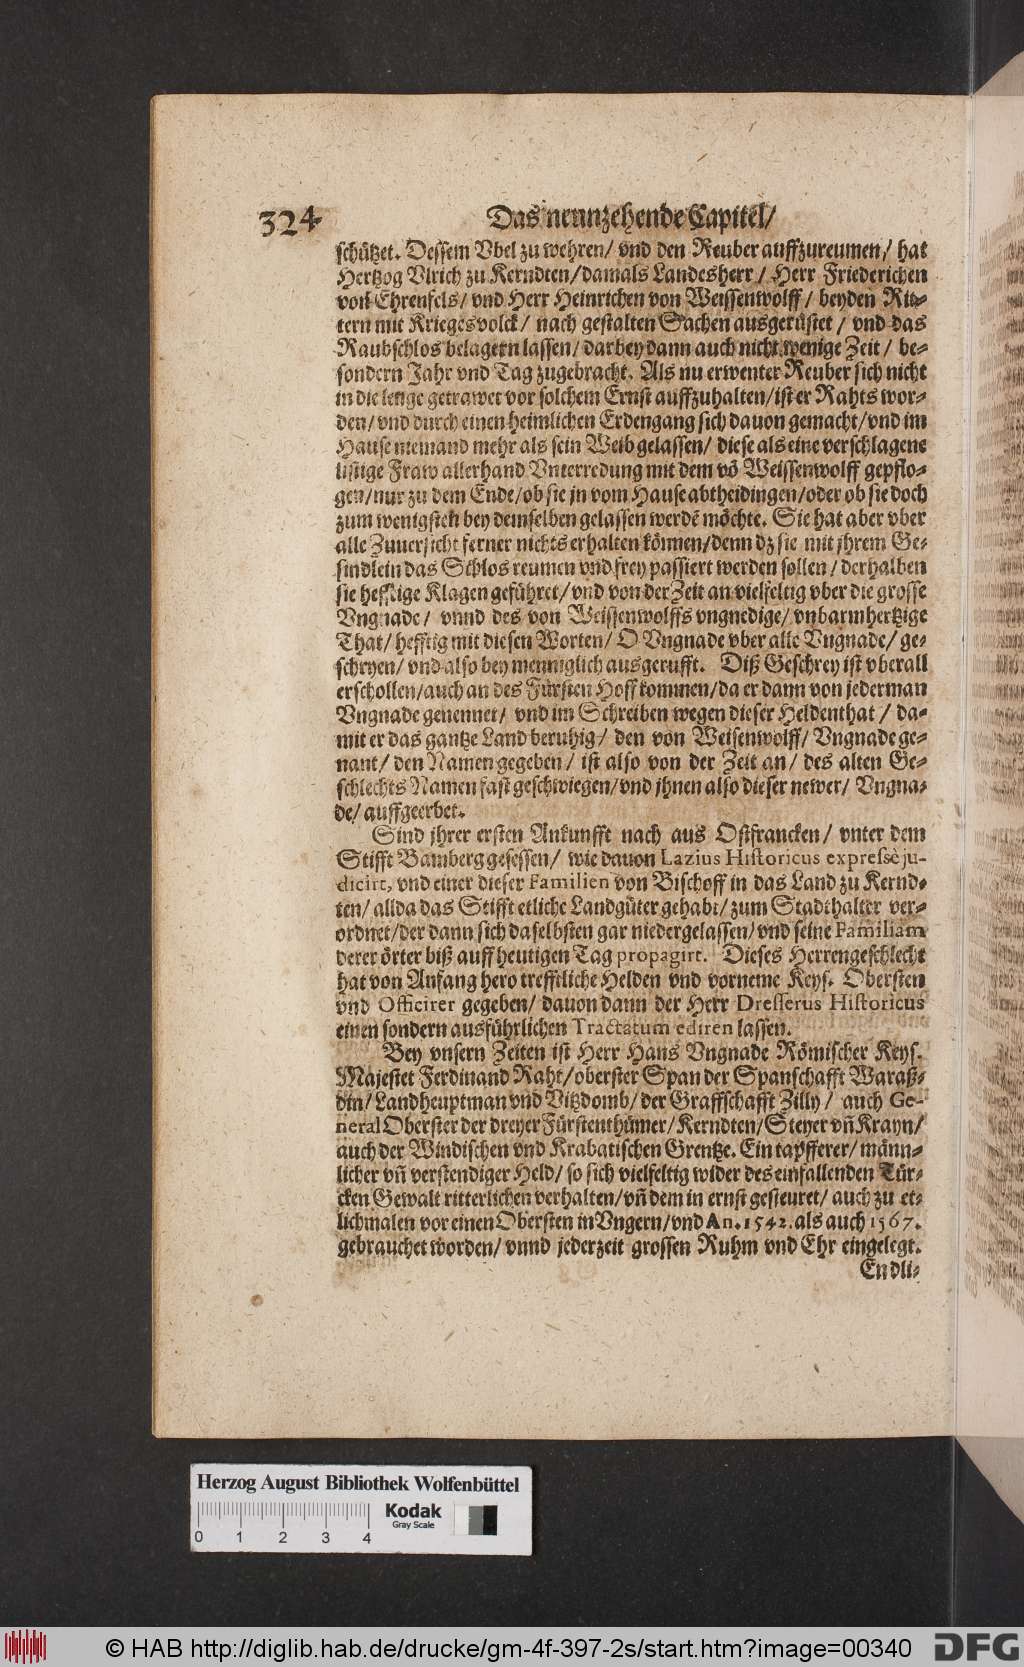 324 Das neunzehende Capitel/
schützet. Dessem Vbel zu wehren/ vnd den Reuber auffzureumen/ hat
Hertzog Vlrich zu Kerndten/ damals Landesherr/ Herr Friederichen
von Ehrenfels/ vnd Herr Heinrichen von Weissenwolff/ beyden Rit-
tern mit Kriegesvolck/ nach gestalten Sachen ausgerüstet/ vnd das
Raubschlos belagern lassen/ darbey dann auch nicht wenige Zeit/ be-
sondern Jahr vnd Tag zugebracht. Als nu erwenter Reuber sich nicht
in die lenge getrawet vor solchem Ernst auffzuhalten/ ist er Rahts wor-
den/ vnd durch einen heimlichen Erdengang sich dauon gemacht/ vnd im
Hause niemand mehr als sein Weib gelassen/ diese als eine verschlagene
listige Fraw allerhand Vnterredung mit dem võ Weissenwolff gepflo-
gen/ nur zu dem Ende/ ob sie jn vom Hause abtheidingen/ oder ob sie doch
zum wenigsten bey demselben gelassen werdẽ möchte. Sie hat aber vber
alle Zuuersicht ferner nichts erhalten können/ denn dz sie mit jhrem Ge-
sindlein das Schlos reumen vnd frey passiert werden sollen/ derhalben
sie hefftige Klagen geführet/ vnd von der Zeit an vielfeltig vber die grosse
Vngnade/ vnnd des von Weissenwolffs vngnedige/ vnbarmhertzige
That/ hefftig mit diesen Worten/ O Vngnade vber alle Vngnade/ ge-
schryen/ vnd also bey menniglich ausgerufft. Diß Geschrey ist vberall
erschollen/ auch an des Fürsten Hoff kommen/ da er dann von jederman
Vngnade genennet/ vnd im Schreiben wegen dieser Heldenthat/ da-
mit er das gantze Land beruhig/ den von Weisenwolff/ Vngnade ge-
nant/ den Namen gegeben/ ist also von der Zeit an/ des alten Ge-
schlechts Namen fast geschwiegen/ vnd jhnen also dieser newer/ Vngna-
de/ auffgeerbet.
Sind jhrer ersten Ankunfft nach aus Ostfrancken/ vnter dem
Stifft Bamberg gesessen/ wie dauon Lazius Historicus expressè ju-
dicirt, vnd einer dieser Familien von Bischoff in das Land zu Kernd-
ten/ allda das Stifft etliche Landgüter gehabt/ zum Stadthalter ver-
ordnet/ der dann sich daselbsten gar niedergelassen/ vnd seine Familiam
derer örter biß auff heutigen Tag propagirt. Dieses Herrengeschlecht
hat von Anfang hero trefftliche Helden vnd vorneme Keys. Obersten
vnd Officirer gegeben/ dauon dann der Herr Dresserus Historicus
einen sondern ausführlichen Tractatum ediren lassen.
Bey vnsern Zeiten ist Herr Hans Vngnade Römischer Keys.
Majestet Ferdinand Raht/ oberster Span der Spanschafft Waraß-
din/ Landheuptman vnd Vitzdomb/ der Graffschafft Zilly/ auch Ge-
neral Oberster der dreyer Fürstenthümer/ Kerndten/ Steyer vñ Krayn/
auch der Windischen vnd Krabatischen Grentze. Ein tapfferer/ männ-
licher vñ verstendiger Held/ so sich vielfeltig wider des einfallenden Tür-
cken Gewalt ritterlichen verhalten/ vñ dem in ernst gesteuret/ auch zu et-
lichmalen vor einen Obersten in Vngern/ vnd An. 1542. als auch 1567.
gebrauchet worden/ vnnd jederzeit grossen Ruhm vnd Ehr eingelegt.
Endli-
Herzog August Bibliothek Wolfenbüttel
Kodak
Gray Scale
0 1 2 3 4
© HAB http://diglib.hab.de/drucke/gm-4f-397-2s/start.htm?image=00340
DFG